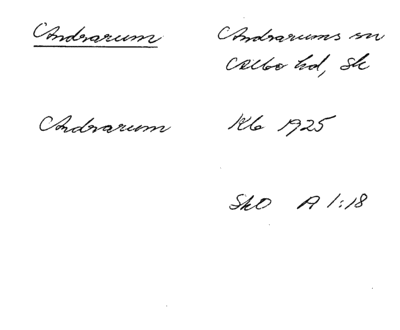 Andrarum Andrarums sn
Albo hd, Sk
Andrarum Klb 1925
SkO A 1:18